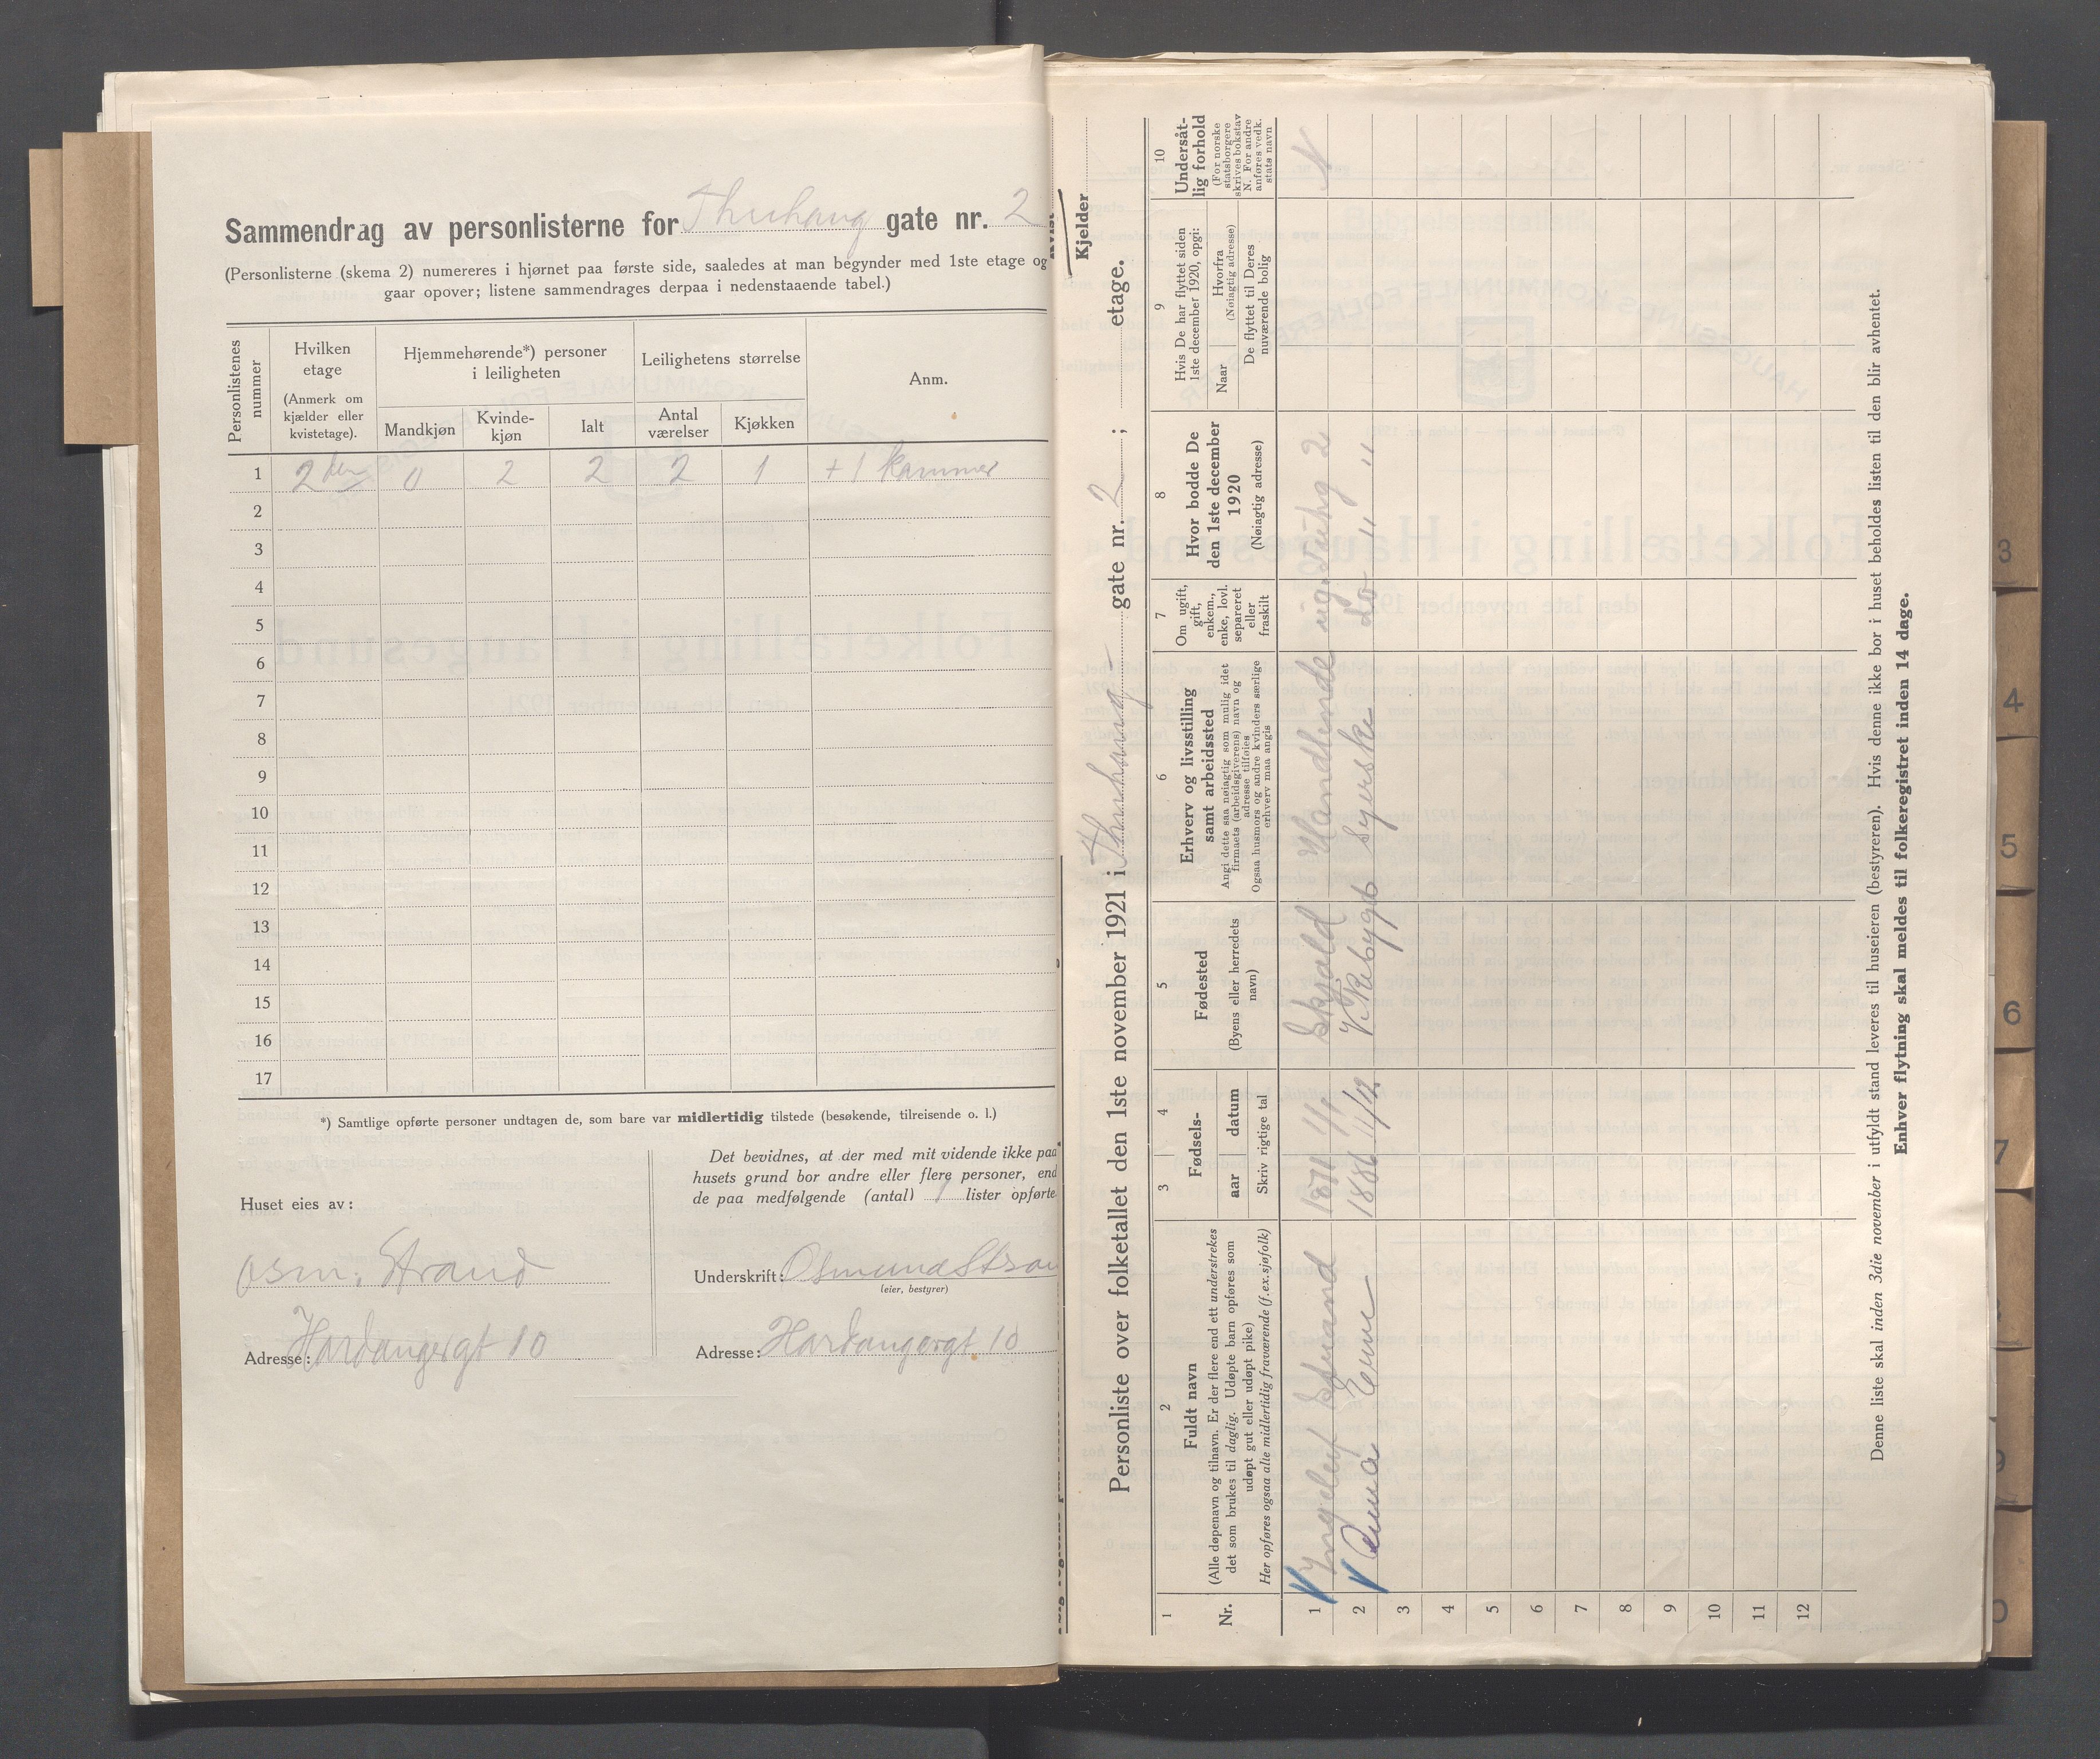 Sammendrag av personlisterne for Thuhaug gate nr. 2
(Personlisterne (skema 2) numereres i hjørnet paa første side, saaledes at man begynder med 1ste etage og
gaar opover; listene sammendrages derpaa i nedenstaaende tabel.)
Personlistenes nummer
Hvilken etage
(Anmerk om kjælder eller kvistetage).
Hjemmehørende*) personer i leiligheten
Leilighetens størrelse
Anm.
Mandkjøn
Kvinde-kjøn
Ialt
Antal værelser
Kjøkken
1 2den 0 2 2 2 1 + 1 kammer
2
3
4
5
6
7
8
9
10
11
12
13
14
15
16
17
*) Samtlige opførte personer undtagen de, som bare var midlertidig tilstede (besøkende, tilreisende o. l.)
Huset eies av:
Osm. Strand
Adresse: Hardangergt 10
Det bevidnes, at der med mit vidende ikke paa
husets grund bor andre eller flere personer, end
de paa medfølgende (antal) 1 lister opførte
Underskrift: Osmund Stran
(eier, bestyrer)
Adresse: Hardangergt. 10
Kvist
Kjelder
Personliste over folketallet den 1ste november 1921 i Thuhaug gate nr. 2 ; etage.
1
Nr.
2
Fuldt navn
(Alle døpenavn og tilnavn. Er der flere end ett understrekes
det som brukes til daglig. Udøpte barn opføres som
udøpt gut eller udøpt pike)
Her opføres ogsaa alle midlertidig fraværende (f.ex. sjøfolk)
3 4
Fødsels-
aar datum
Skriv rigtige tal
5
Fødested
(Byens eller herredets
navn)
6
Erhverv og livsstilling
samt arbeidssted
Angi dette saa nøiagtig som mulig idet
firmaets (arbeidsgiverens) navn og
adresse tilføies
Ogsaa husmors og andre kvinders særlige
erhverv maa angis
7
Om ugift,
gift,
enkem.,
enke, lovl.
separeret
eller
fraskilt
8
Hvor bodde De
den 1ste december
1920
(Nøiagtig adresse)
9
Hvis De har flyttet siden
1ste december 1920, opgi:
Naar
Hvorfra
(Nøiagtig adresse)
De flyttet til Deres
nuværende bolig
10
Undersåt-
lig forhold
(For norske
statsborgere
skrives bokstav
N. For andre
anføres vedk.
stats navn
1 Strand Skjold Handlende ug. 2 N
2 Anna 1886 4/12 Syerske do " "
3
4
5
6
7
8
9
10
11
12
Denne liste skal inden 3die november i utfyldt stand leveres til huseieren (bestyreren). Hvis denne ikke bor i huset beholdes listen til den blir avhentet.
Enhver flytning skal meldes til folkeregistret inden 14 dage.
3
4
5
6
7
9
0